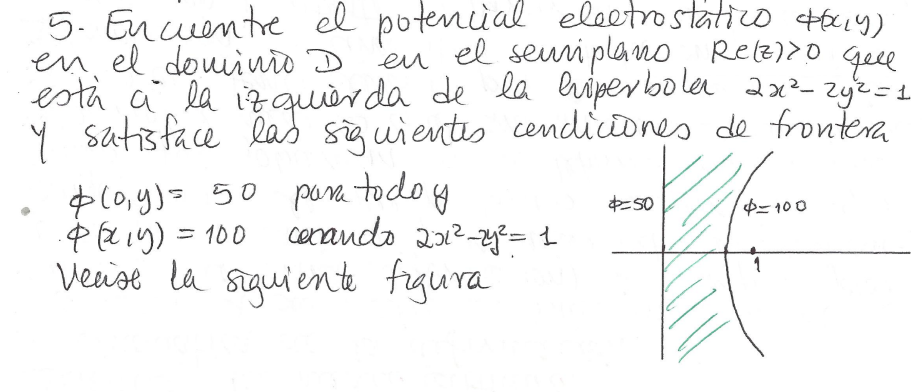 5. Encuentre el potencial electrostático ϕ(x,y)
en el dominio D en el semiplano Re(z)>0 que
está a la izquierda de la hiperbola 2x²-2y²=1
y satisface las siguientes condiciones de frontera
ϕ(0,y)= 50 para todo y
ϕ(x,y) = 100 cuando 2x²-2y²= 1
Vease la siguiente figura
ϕ=50
ϕ=100
1